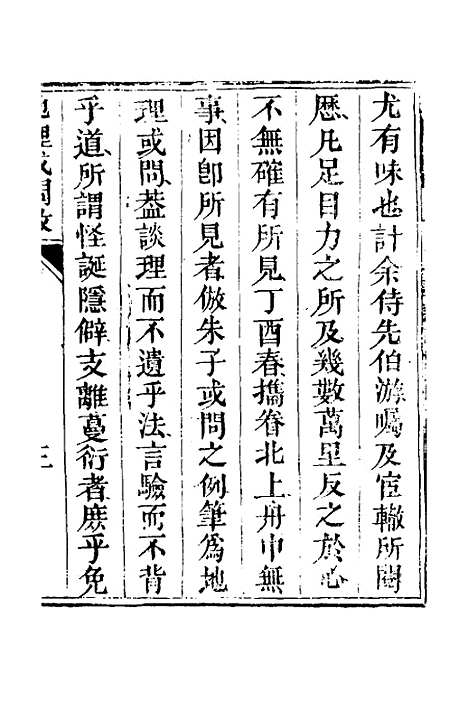 尤有味也計余侍先伯游囑及宦轍所閱
歷凡足目力之所及幾數萬里反之於心
不無確有所見丁酉春攜眷北上舟中無
事因卽所見者倣朱子或問之例筆爲地
理或問葢談理而不遺乎法言驗而不背
乎道所謂怪誕隱僻支離蔓衍者庶乎免
地理或問敘
三